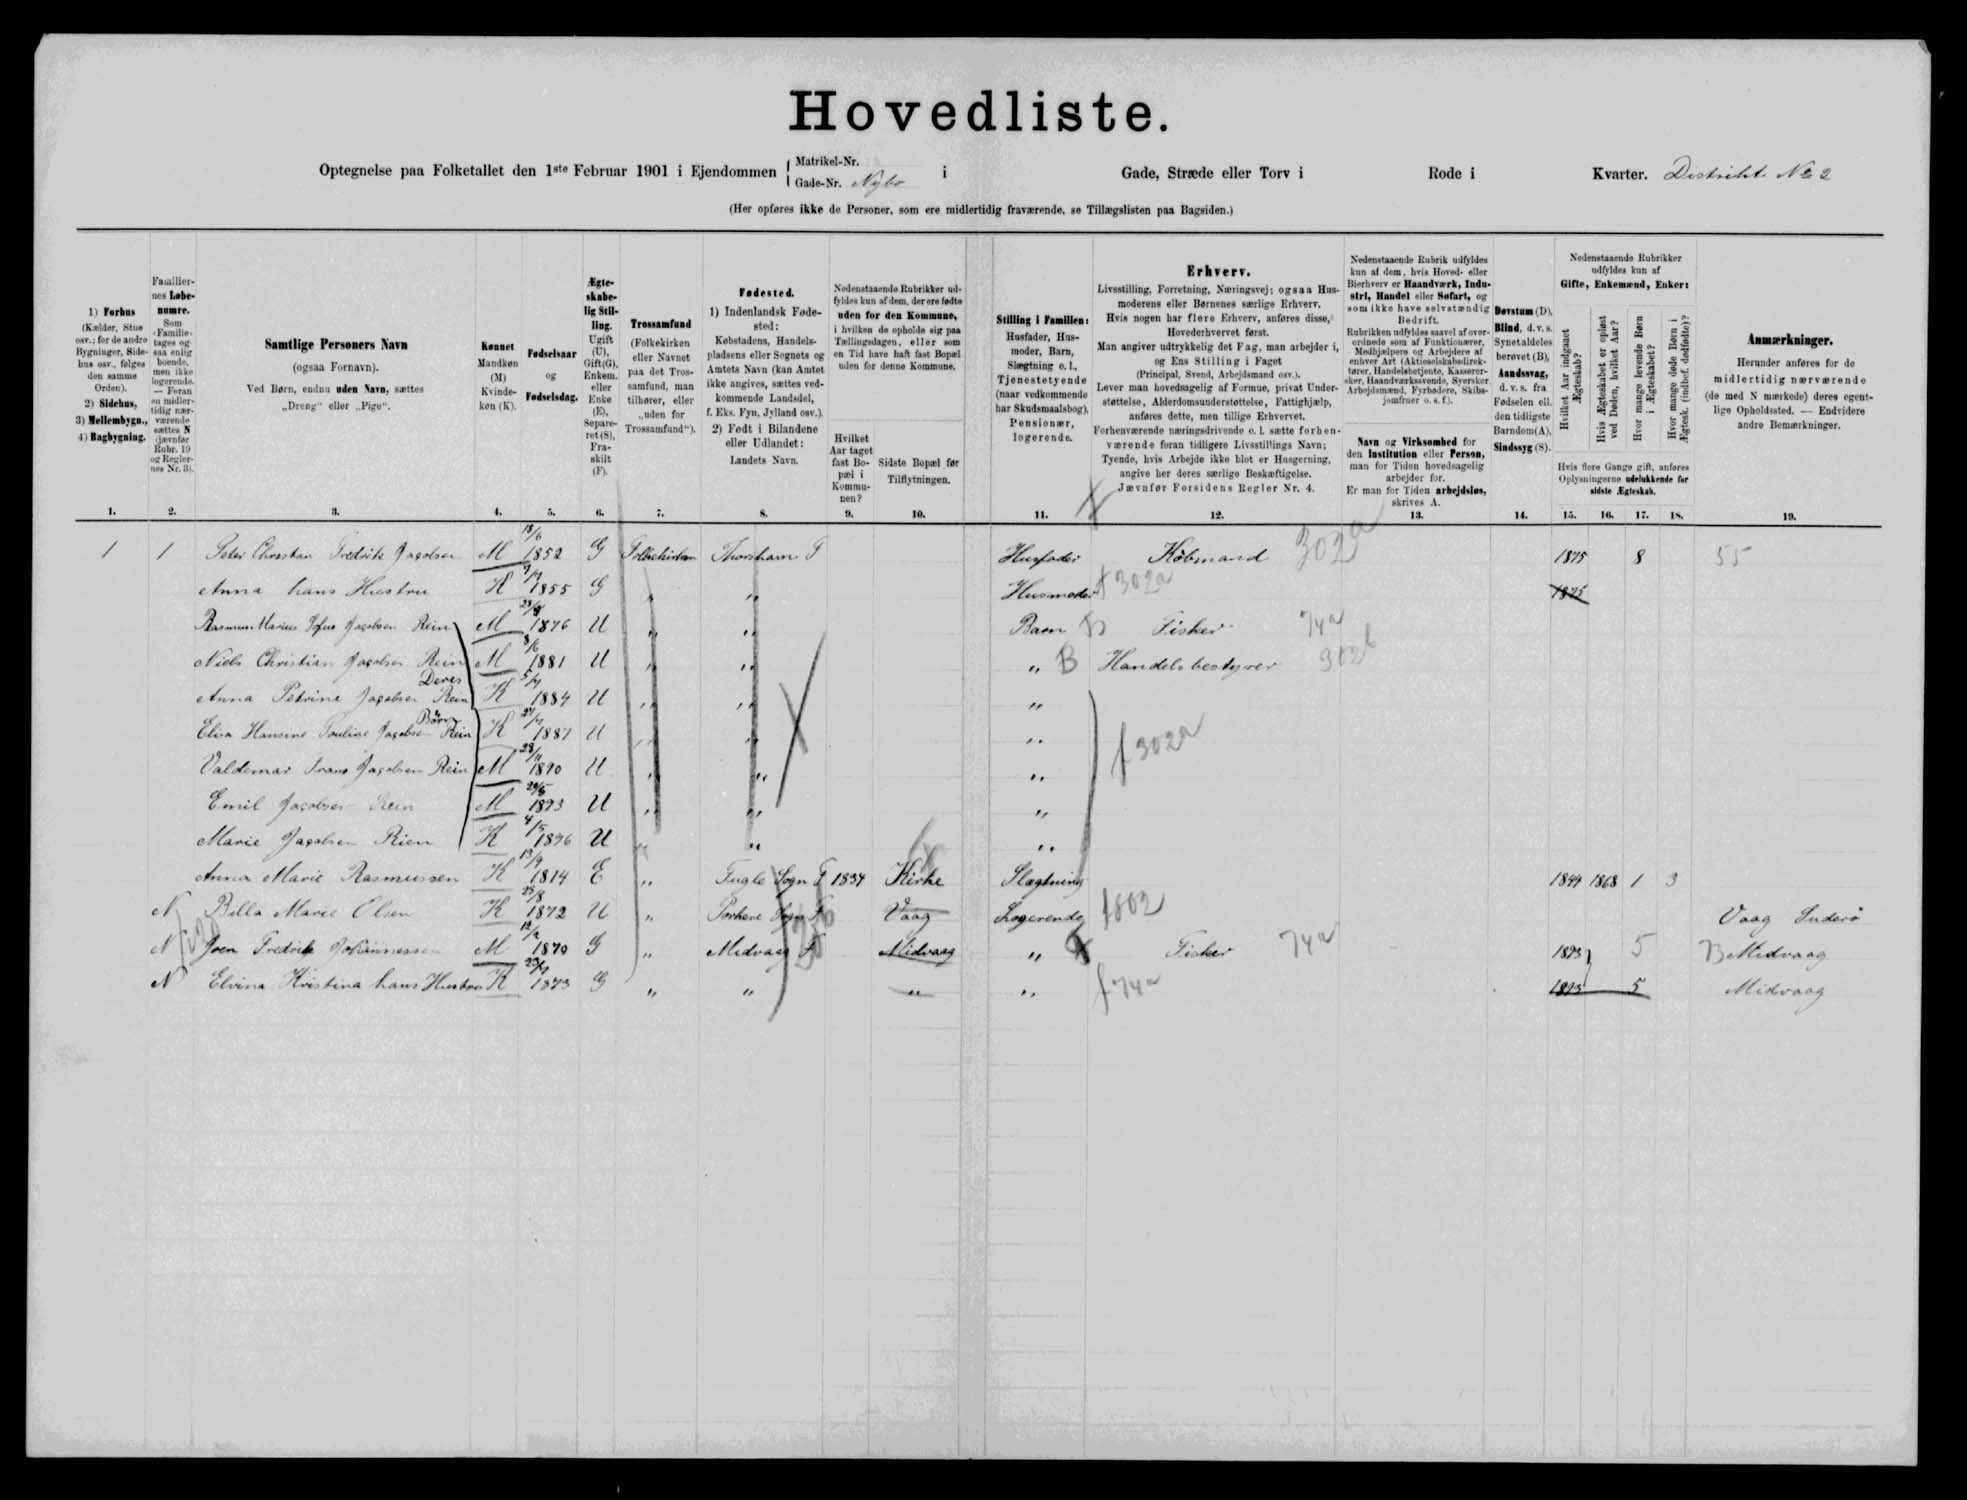 Hovedliste.
Optegnelse paa Folketallet den 1ste Februar 1901 i Ejendommen { Matrikel-Nr. Gade-Nr. Nybo i Gade, Stræde eller Torv i Rode i Kvarter. Distrikt No 2
(Her opføres ikke de Personer, som ere midlertidig fraværende, se Tillægslisten paa Bagsiden.)
1) Forhus
(Kælder, Stue
osv.; for de andre
Bygninger, Side-
hus osv., følges
den samme
Orden).
2) Sidehus,
3) Mellembygn.,
4) Bagbygning.
Familier-
nes Løbe-
numre.
Som
"Familie"
tages og-
saa enlig
boende,
men ikke
logerende.
— Foran
en midler-
tidig nær-
værende
sættes N
(jævnfør
Rubr. 19
og Regler-
nes Nr. 3).
Samtlige Personers Navn
(ogsaa Fornavn).
Ved Børn, endnu uden Navn, sættes
„Dreng“ eller „Pige“.
Kønnet
Mandkøn
(M)
Kvinde-
køn (K).
Fødselsaar
og
Fødselsdag.
Ægte-
skabe-
lig Stil-
ling.
Ugift
(U),
Gift(G),
Enkem.
eller
Enke
(E),
Separe-
ret (S),
Fra-
skilt
(F).
Trossamfund
(Folkekirken
eller Navnet
paa det Tros-
samfund, man
tilhører, eller
„uden for
Trossamfund“).
Fødested.
1) Indenlandsk Føde-
sted:
Købstadens, Handels-
pladsens eller Sognets og
Amtets Navn (kan Amtet
ikke angives, sættes ved-
kommende Landsdel,
f. Eks. Fyn, Jylland osv.).
2) Født i Bilandene
eller Udlandet:
Landets Navn.
Nedenstaaende Rubrikker ud-
fyldes kun af dem, der ere fødte
uden for den Kommune,
i hvilken de opholde sig paa
Tællingsdagen, eller som
en Tid have haft fast Bopæl
uden for denne Kommune.
Hvilket
Aar taget
fast Bo-
pæl i
Kommu-
nen?
Sidste Bopæl før
Tilflytningen.
Stilling i Familien:
Husfader, Hus-
moder, Barn,
Slægtning o. l.,
Tjenestetyende
(naar vedkommende
har Skudsmaalsbog),
Pensionær,
logerende.
Erhverv.
Livsstilling, Forretning, Næringsvej; ogsaa Hus-
moderens eller Børnenes særlige Erhverv.
Hvis nogen har flere Erhverv, anføres disse,
Hovederhvervet først.
Man angiver udtrykkelig det Fag, man arbejder i,
og Ens Stilling i Faget
(Principal, Svend, Arbejdsmand osv.).
Lever man hovedsagelig af Formue, privat Under-
støttelse, Alderdomsunderstøttelse, Fattighjælp,
anføres dette, men tillige Erhvervet.
Forhenværende næringsdrivende o. l. sætte forhen-
værende foran tidligere Livsstillings Navn;
Tyende, hvis Arbejde ikke blot er Husgerning,
angive her deres særlige Beskæftigelse.
Jævnfør Forsidens Regler Nr. 4.
Nedenstaaende Rubrik udfyldes
kun af dem, hvis Hoved- eller
Bierhverv er Haandværk, Indu-
stri, Handel eller Søfart, og
som ikke have selvstændig
Bedrift.
Rubrikken udfyldes saavel af over-
ordnede som af Funktionærer,
Medhjælpere og Arbejdere af
enhver Art (Aktieselskabsdirek-
tører, Handelsbetjente, Kasserer-
sker, Haandværkssvende, Syersker,
Arbejdsmænd, Fyrbødere, Skibs-
jomfruer o. s. f.).
Navn og Virksomhed for
den Institution eller Person,
man for Tiden hovedsagelig
arbejder for.
Er man for Tiden arbejdsløs,
skrives A.
Døvstum (D),
Blind, d. v. s.
Synet aldeles
berøvet (B),
Aandssvag,
d. v. s. fra
Fødselen ell.
den tidligste
Barndom(A),
Sindssyg (S).
Nedenstaaende Rubrikker
udfyldes kun af
Gifte, Enkemænd, Enker:
Hvilket Aar indgaaet
Ægteskab?
Hvis Ægteskabet er opløst
ved Døden, hvilket Aar?
Hvor mange levende Børn
i Ægteskabet?
Hvor mange døde Børn i
Ægtesk. (indbef. dødfødte)?
Hvis flere Gange gift, anføres
Oplysningerne udelukkende for
sidste Ægteskab.
Anmærkninger.
Herunder anføres for de
midlertidig nærværende
(de med N mærkede) deres egent-
lige Opholdssted. — Endvidere
andre Bemærkninger.
1. 2. 3. 4. 5. 6. 7. 8. 9. 10. 11. 12. 13. 14. 15. 16. 17. 18. 19.
1 1 Peter Christian Fredrik Jacobsen M 18/6 1852 G Folkekirken Thorshavn F Husfader Købmand 302a 1875 8 55
Anna hans Hustru K 1855 G " " Husmoder f 302a 1875
Rasmus Marius Sofus Jacobsen Rein M 1876 U " " Barn Fisker 74a
Niels Christian Jacobsen Rein M 8/6 1881 U " " " B Handelsbestyrer 302b
Deres
Anna Petrine Jacobsen Rein K 1884 U " " "
Børn
Elisa Hansine Pauline Jacobsen Rein K 1887 U " " " f 302a
Valdemar Frans Jacobsen Rein M 28/11 1890 U " " "
Emil Jacobsen Rein M 29/5 1893 U " " "
Marie Jacobsen Rien K 4/5 1896 U " " "
Anna Marie Rasmussen K 13/9 1814 E " Fugle Sogn F 1834 Kirke Slægtning 1844 1868 1 3
N Billa Marie Olsen K 23/8 1872 U " Porkere Sogn F Vaag Logerende f802 Vaag Suderø
N Joen Fredrik Johannessen M 1870 G " Midvaag F Midvaag " Fisker 74a 1893 5 B Midvaag
N Elvina Kristina hans Hustru K 1873 G " " " " f 74a 1893 5 Midvaag